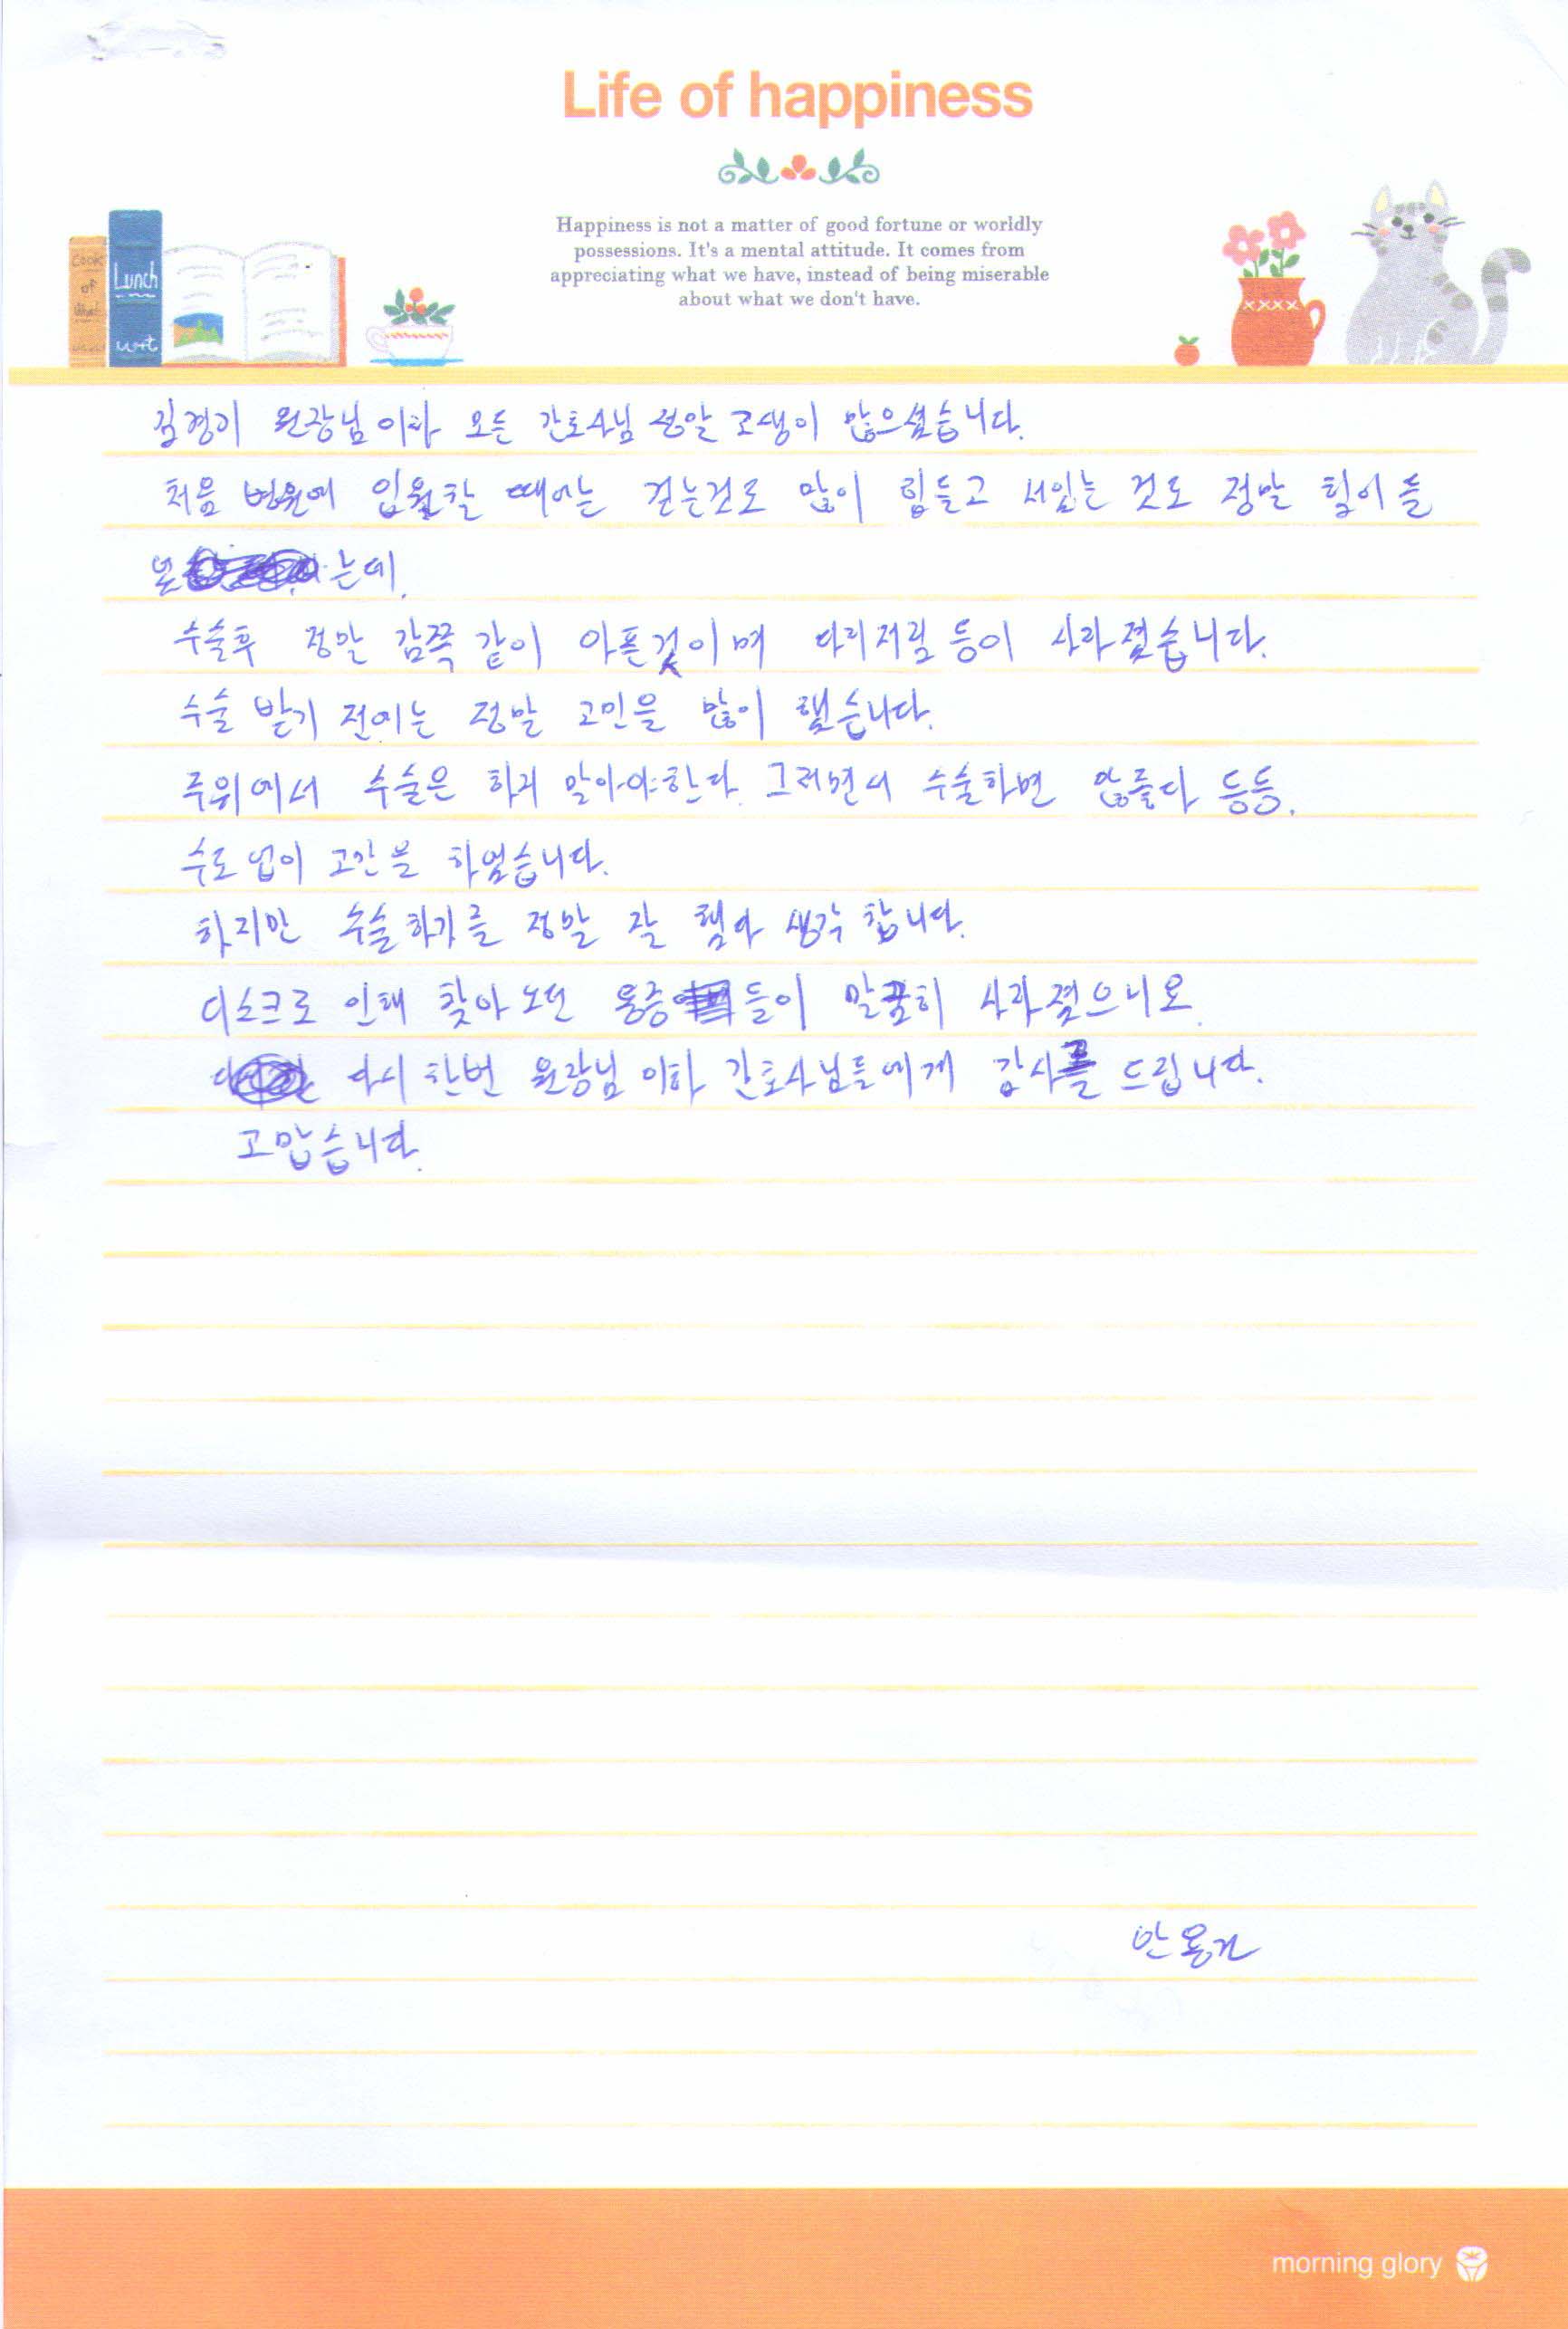 Life of happiness
Happiness is not a matter of good fortune or worldly
possessions. It's a mental attitude. It comes from
appreciating what we have, instead of being miserable
about what we don't have.
COOK
of
What
Lunch
김경기 원장님 이하 모든 간호사님 정말 고생이 많으셨습니다.
처음 병원에 입원할 때에는 걷는것도 많이 힘들고 서있는 것도 정말 힘이 들
는데.
수술후 정말 감쪽 같이 아픈것이며 다리저림 등이 사라졌습니다.
수술 받기 전에는 정말 고민을 많이 했습니다.
주위에서 수술은 하지 말아야한다. 그러면서 수술하면 등등.
수도 없이 고민을 하였습니다.
하지만 수술하기를 정말 잘 했다 생각 합니다.
디스크로 인해 찾아 오던 통증들이 말끔히 사라졌으니요.
다시 한번 원장님 이하 간호사님들에게 감사를 드립니다.
고맙습니다.
안
morning glory